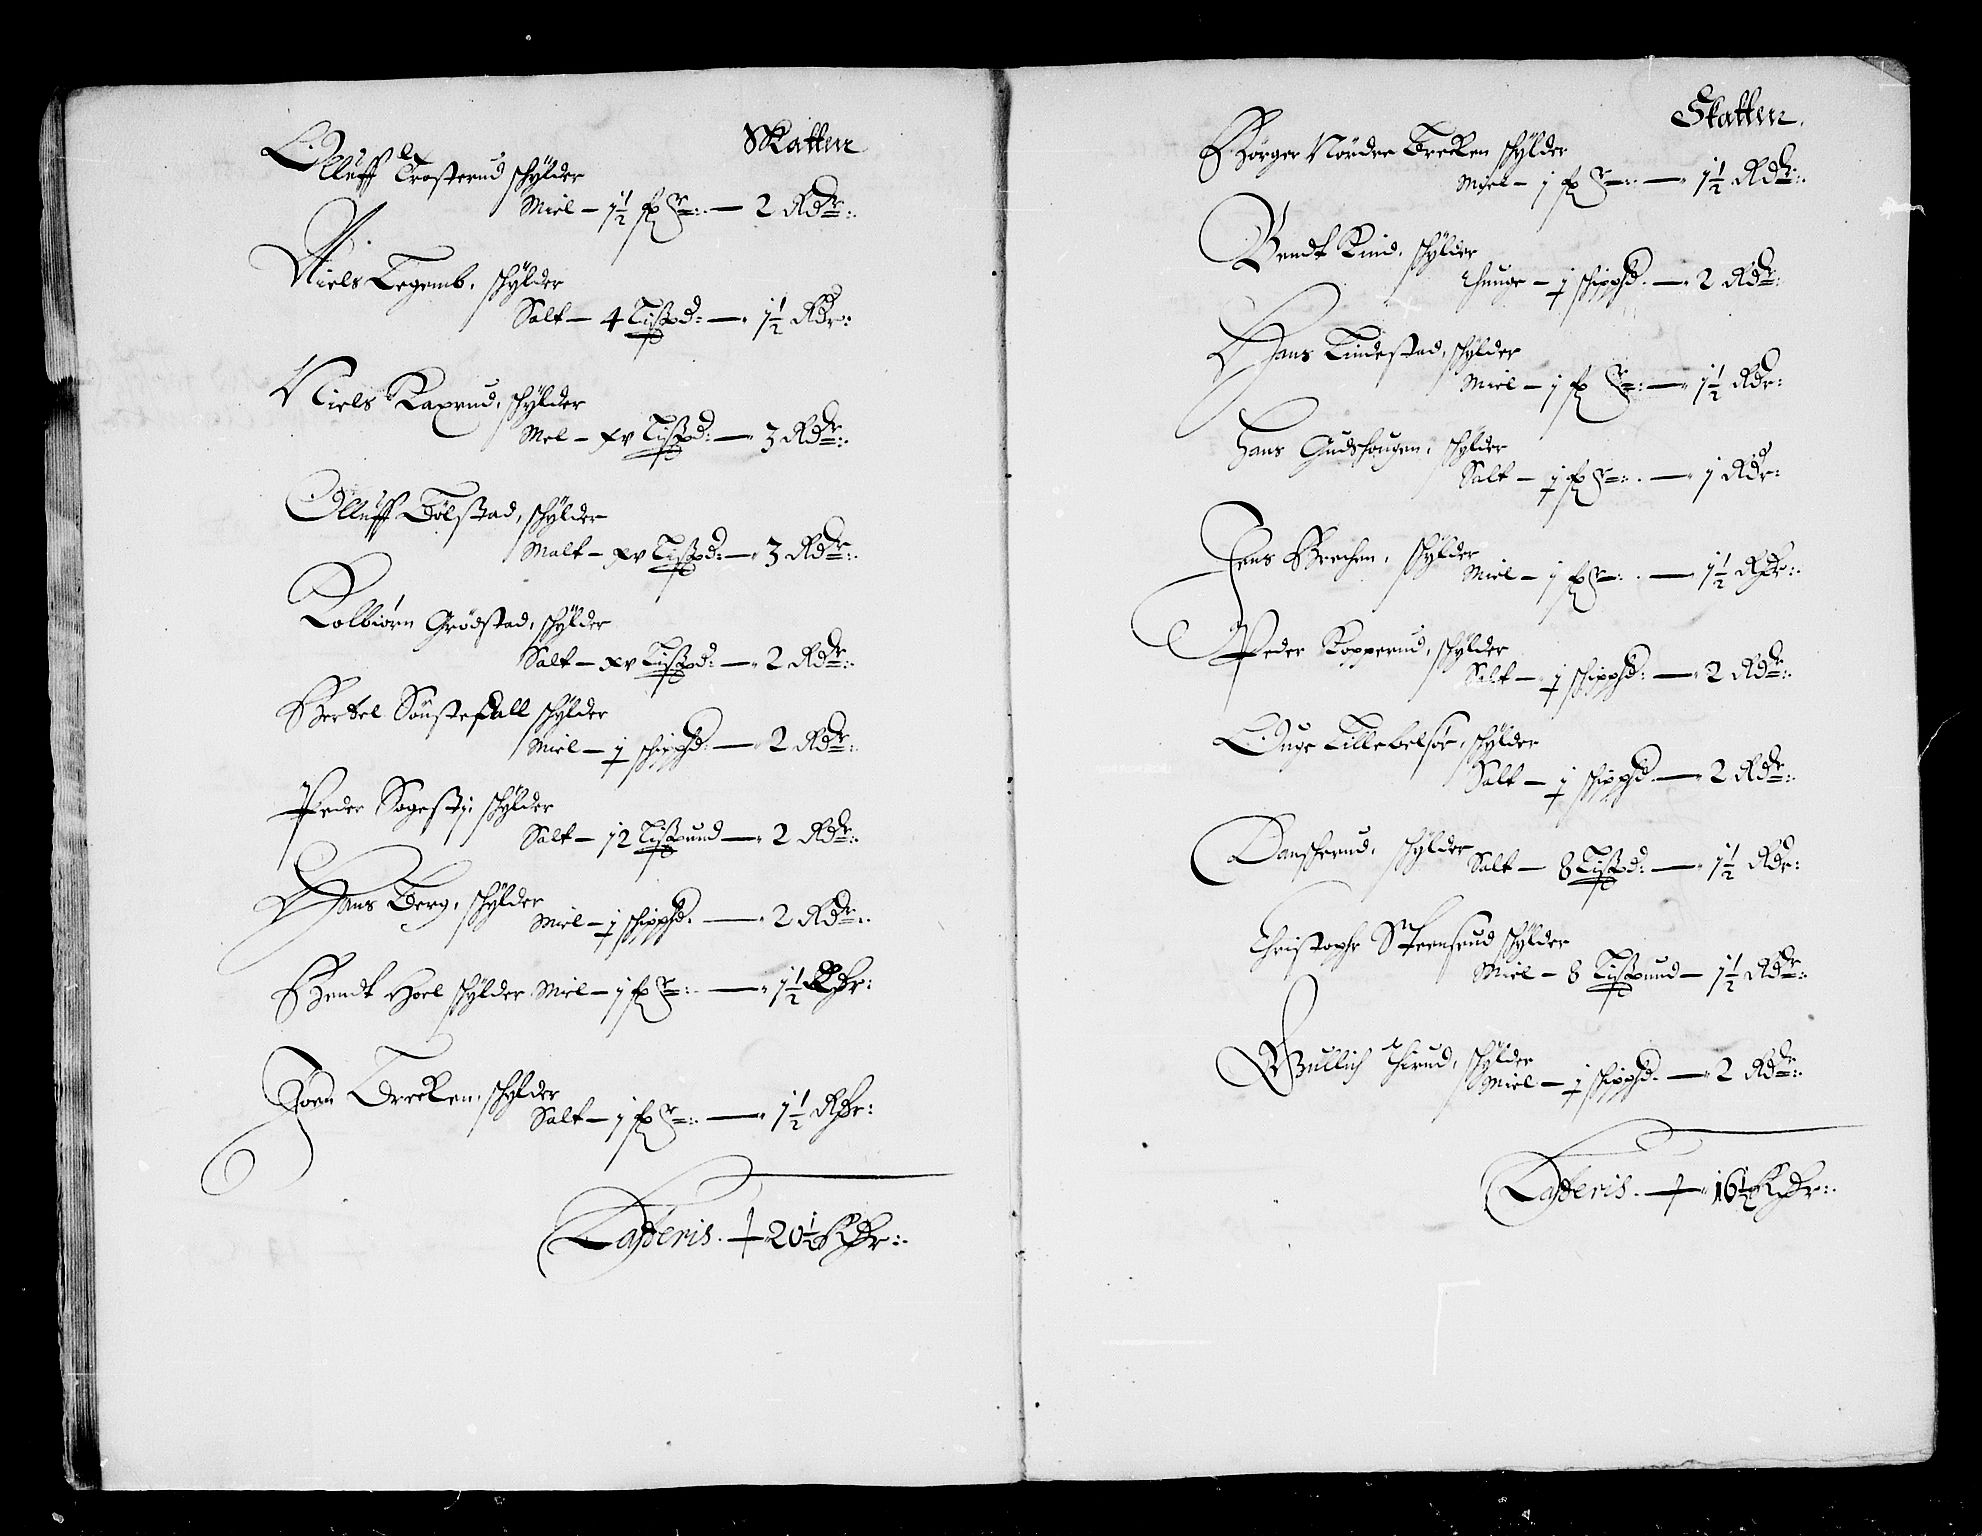 Skatten
Olluff Trosterud schylder
Miel — 1½ fr: — 2 Rdr:
Niels Tegemb, schylder
Salt — 4 Lispd: — 1½ Rdr:
Niels Raxrud, schylder
Mel — xv Lispd: — 3 Rdr:
Olluff Tølstad, schylder
Malt — xv Lispd: — 3 Rdr:
Kolbiørn Grødstad, schylder
Salt — xv Lispd: — 2 Rdr:
Bertel schylder
Miel — j schippd: — 2 Rdr:
Peder schylder
Salt — 12 Lispund — 2 Rdr:
Hans Berg, schylder
Miel — j schippd. — 2 Rdr:
Bendt Hoel schylder Miel — j fr: — 1½ Rdr:
Joen Brecken, schylder
Salt — j fr: — 1½ Rdr:
Lateris. — 20½ Rdr:
Skatten.
Børger Nordre Brecken schylder
Miel — j fr: — 1½ Rdr:
Bendt Rind, schylder
Huuge — j schippd. — 2 Rdr:
Hans Lindestad, schylder
Miel — j fr: — 1½ Rdr:
Hans Gudshougen, schylder
Salt — j fr: — 1 Rdr:
Jens Brechen, schylder
Miel — j fr: — 1½ Rdr:
Peder Kopperud, schylder
Salt — j schippd: — 2 Rdr:
Ouge Lillebelsøe, schylder
Salt — j schippd. — 2 Rdr:
Danserud, schylder Salt — 8 Lispd: — 1½ Rdr:
Christopher Steensrud schylder
Miel — 8 Lispund — 1½ Rdr:
Gullich Thirud, schylder
Miel — j schippd. — 2 Rdr:
Lateris. — 16½ Rdr: